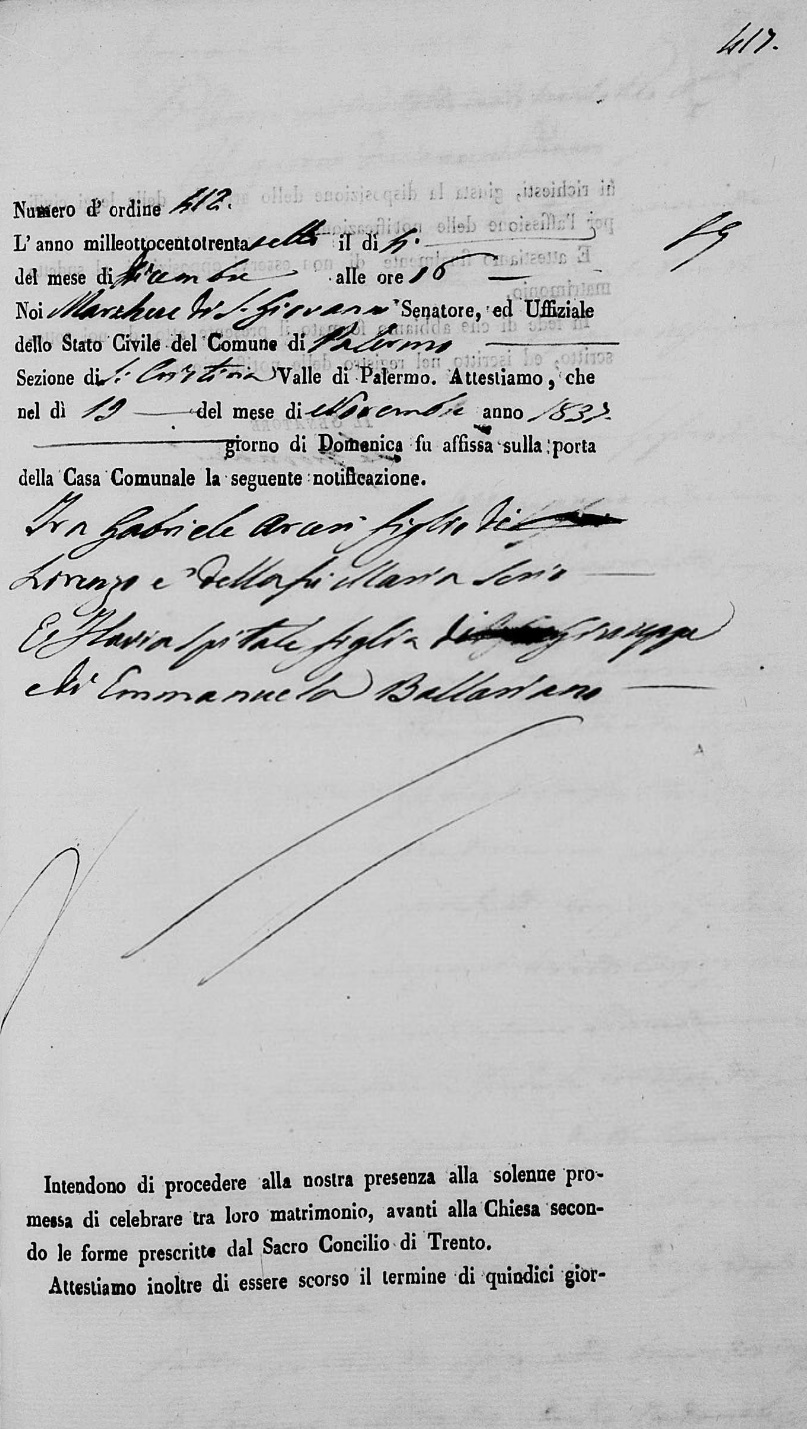 417.
Numero d' ordine 412.
L' anno milleottocentotrentasette il dì 4.
del mese di Dicembre alle ore 16
Noi Marchese di S. Giovanni Senatore, ed Uffiziale
dello Stato Civile del Comune di Palermo
Sezione di S. Cristina Valle di Palermo. Attestiamo, che
nel dì 19 del mese di Novembre anno 1837.
giorno di Domenica fu affissa sulla porta
della Casa Comunale la seguente notificazione.
Tra Gabriele Arceri figlio di
Lorenzo e della fu Maria Serio
E Flavia Spitale figlia di Giuseppe
e di Emmanuela Ballariano
Intendono di procedere alla nostra presenza alla solenne pro-
messa di celebrare tra loro matrimonio, avanti alla Chiesa secon-
do le forme prescritte dal Sacro Concilio di Trento.
Attestiamo inoltre di essere scorso il termine di quindici gior-